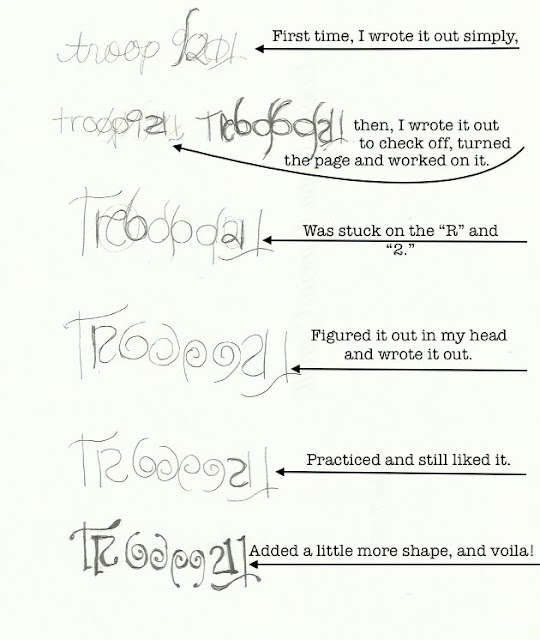 troop 921
First time, I wrote it out simply,
troop921 Troop921
then, I wrote it out
to check off, turned
the page and worked on it.
Troop921
Was stuck on the “R” and
“2.”
TRoop921
Figured it out in my head
and wrote it out.
TRoop921
Practiced and still liked it.
TRoop921
Added a little more shape, and voila!